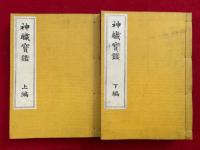 神職寶鑑
上編
神職寶鑑
下編